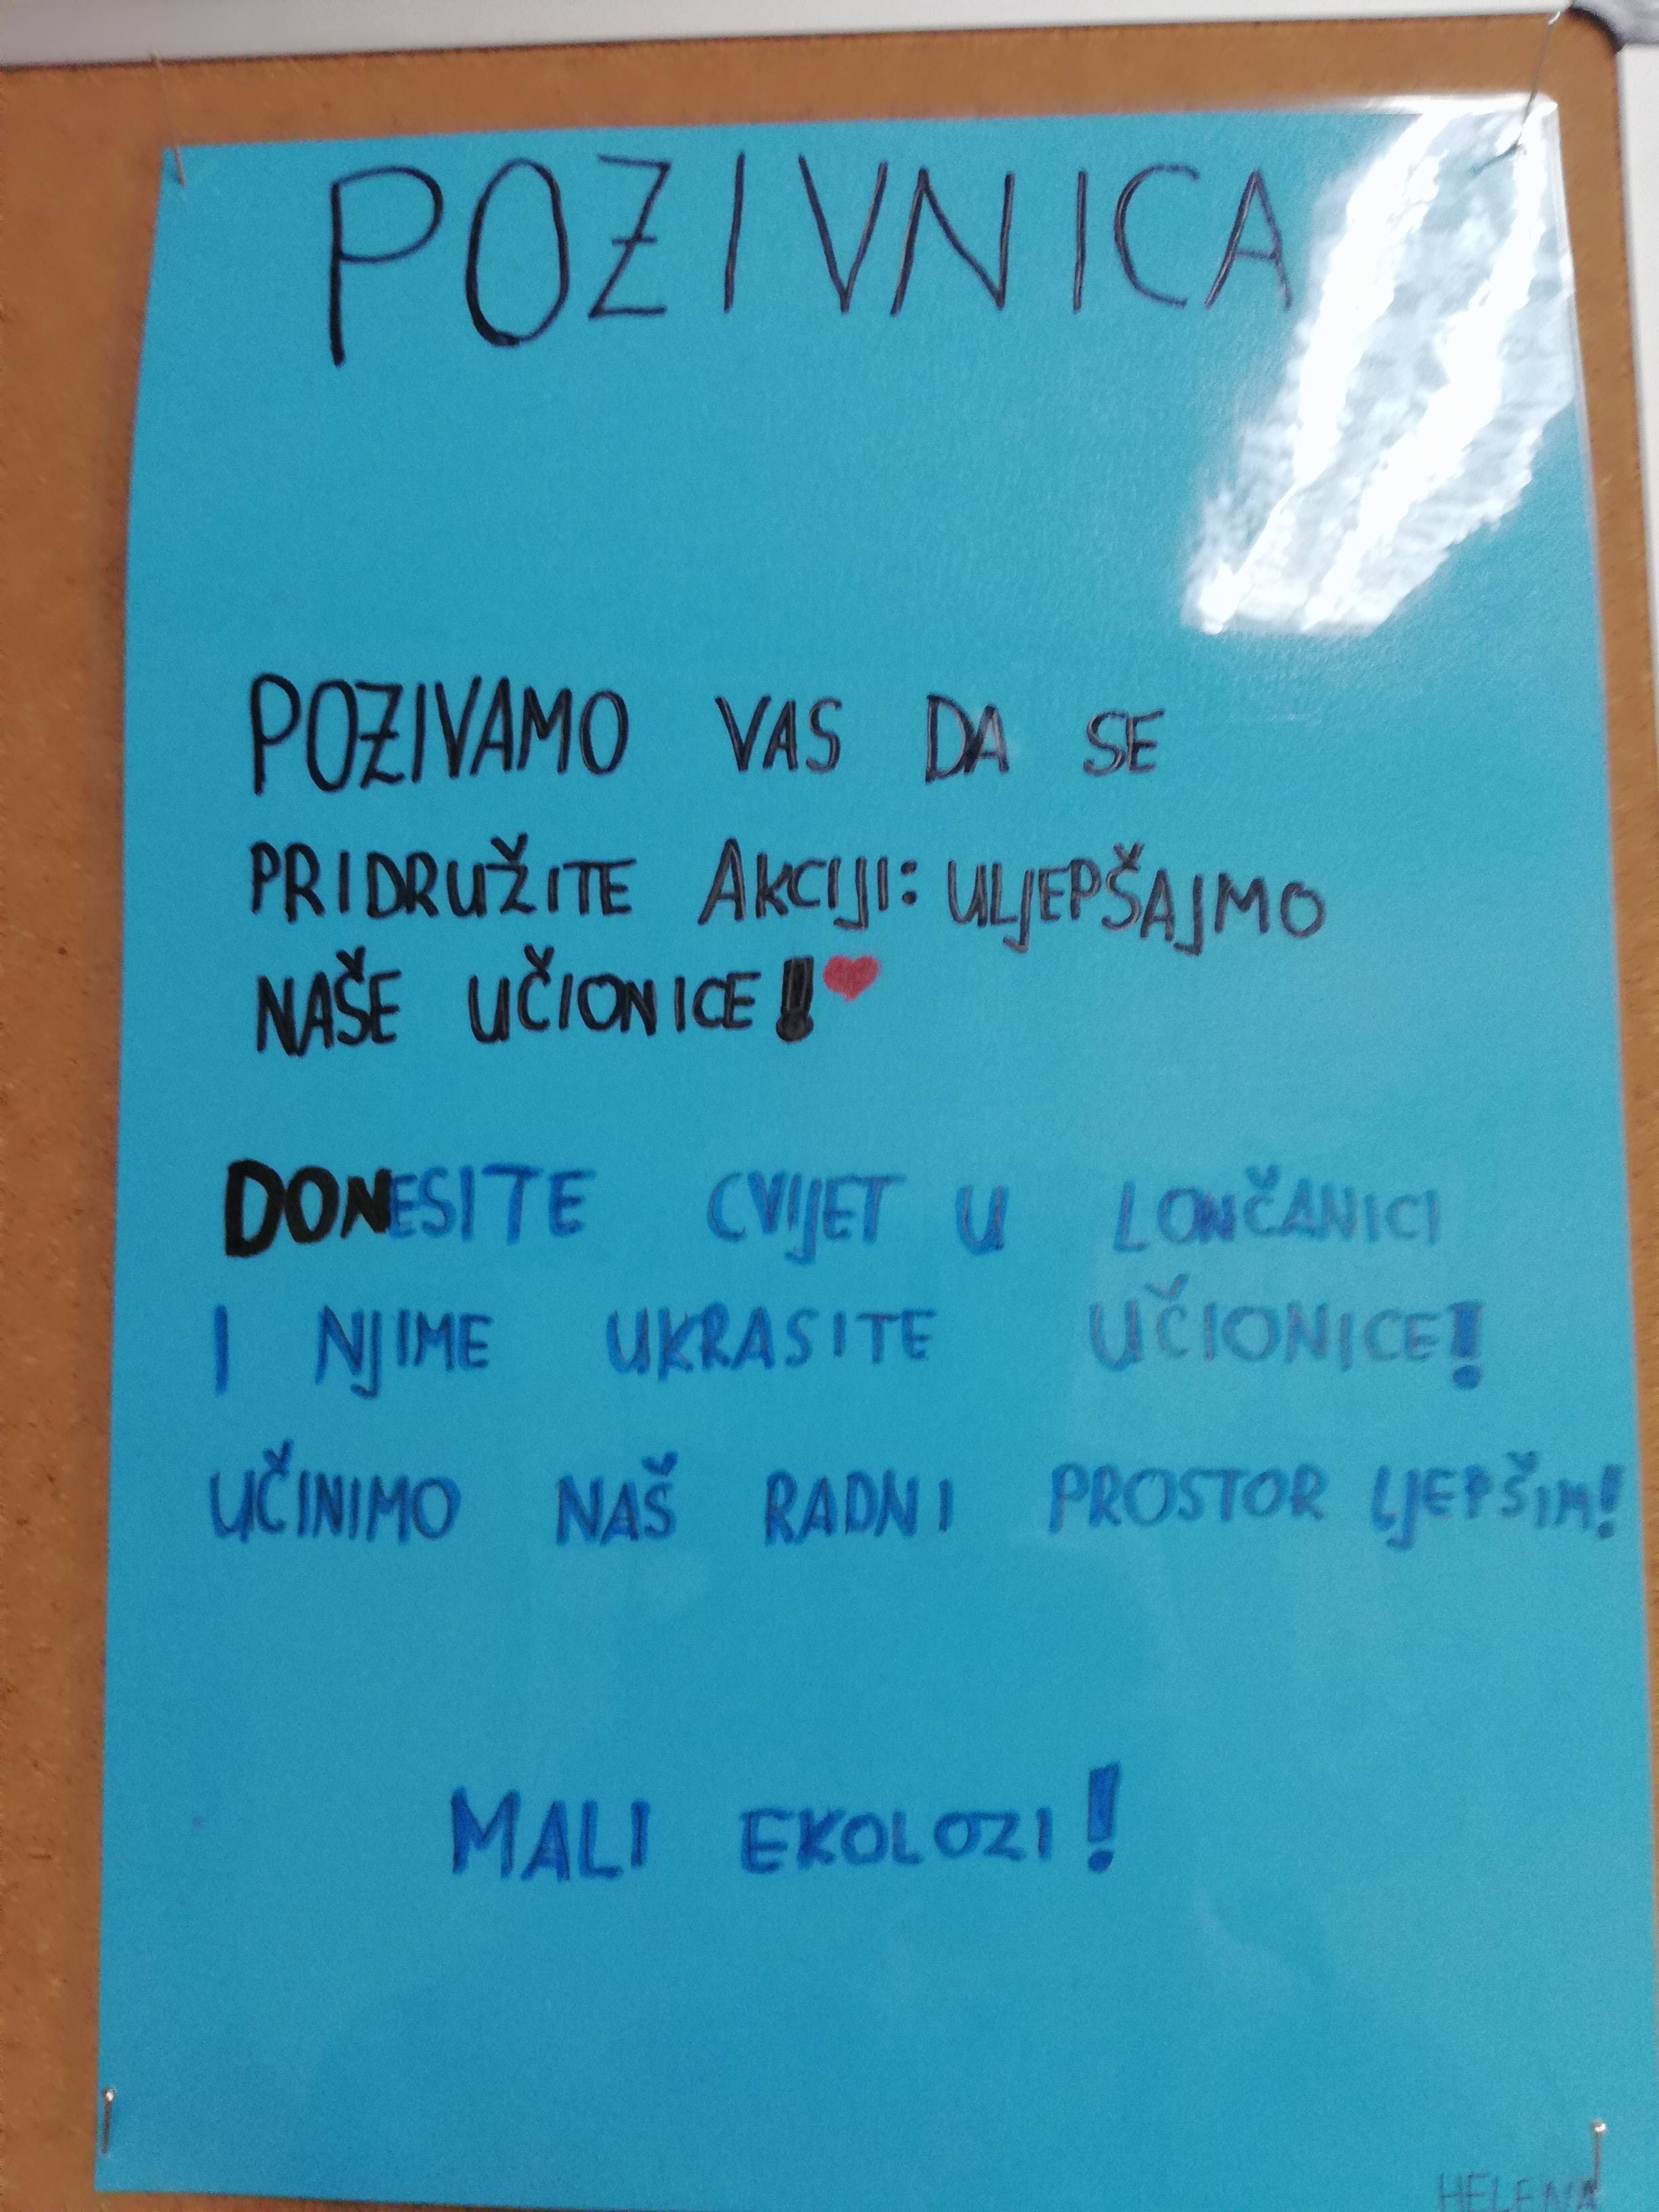 POZIVNICA
POZIVAMO VAS DA SE
PRIDRUŽITE AKCIJI: ULJEPŠAJMO
NAŠE UČIONICE!❤
DONESITE CVIJET U LONČANICI
I NJIME UKRASITE UČIONICE!
UČINIMO NAŠ RADNI PROSTOR LJEPŠIM!
MALI EKOLOZI!
HELENA